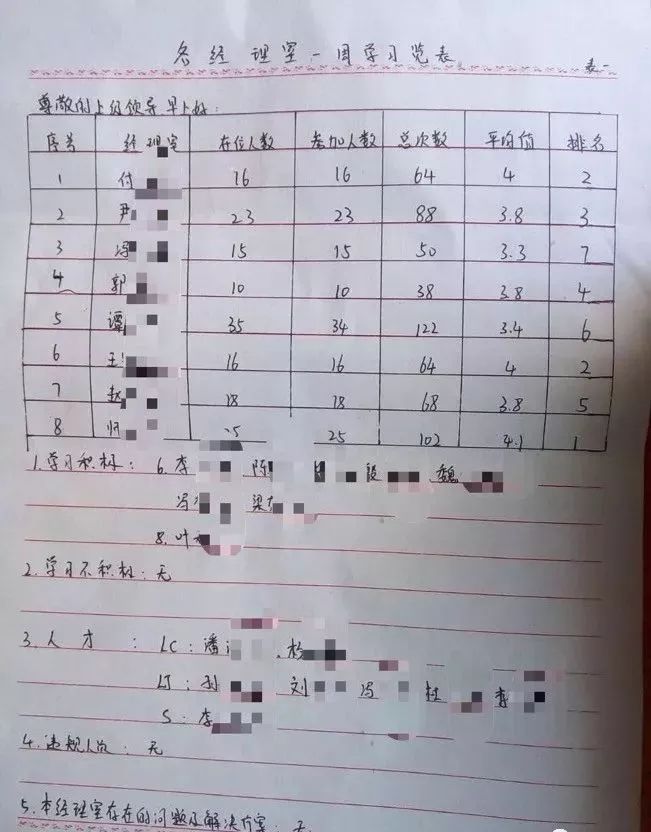 各经理室一周学习览表
表一
尊敬的上级领导早上好:
序号 经理室 在位人数 参加人数 总次数 平均值 排名
1 付 16 16 64 4 2
2 尹 23 23 88 3.8 3
3 冯 15 15 50 3.3 7
4 郭 10 10 38 3.8 4
5 谭 35 34 122 3.4 6
6 王 16 16 64 4 2
7 赵 18 18 68 3.8 5
8 归 25 25 102 4.1 1
1.学习积极: 6.李 陈 段 魏
冯 梁
8.叶
2.学习不积极:无
3.人才: LC:潘 、杨
LJ:孙 刘 冯 杜 李
S:李
4.违规人员:无
5.本经理室存在的问题及解决方案:无